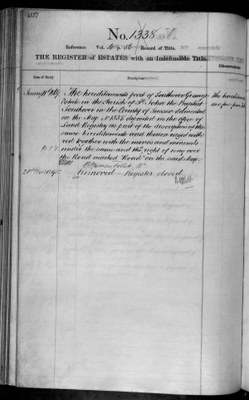 No. 1338
Reference Vol. Record of Title.
THE REGISTER of ESTATES with an Indefeasible Title.
Date of Entry
Description
The hereditaments part of Southover Grange
Estate in the Parish of St. John the Baptist
Southover in the County of Sussex delineated
on the Map No 1338 deposited in the office of
Land Registry as part of the description of the
same hereditaments and thereon edged with
red together with the mines and minerals
under the same and the right of way over
the Road marked "Road" on the said Map.
Removed - Register closed